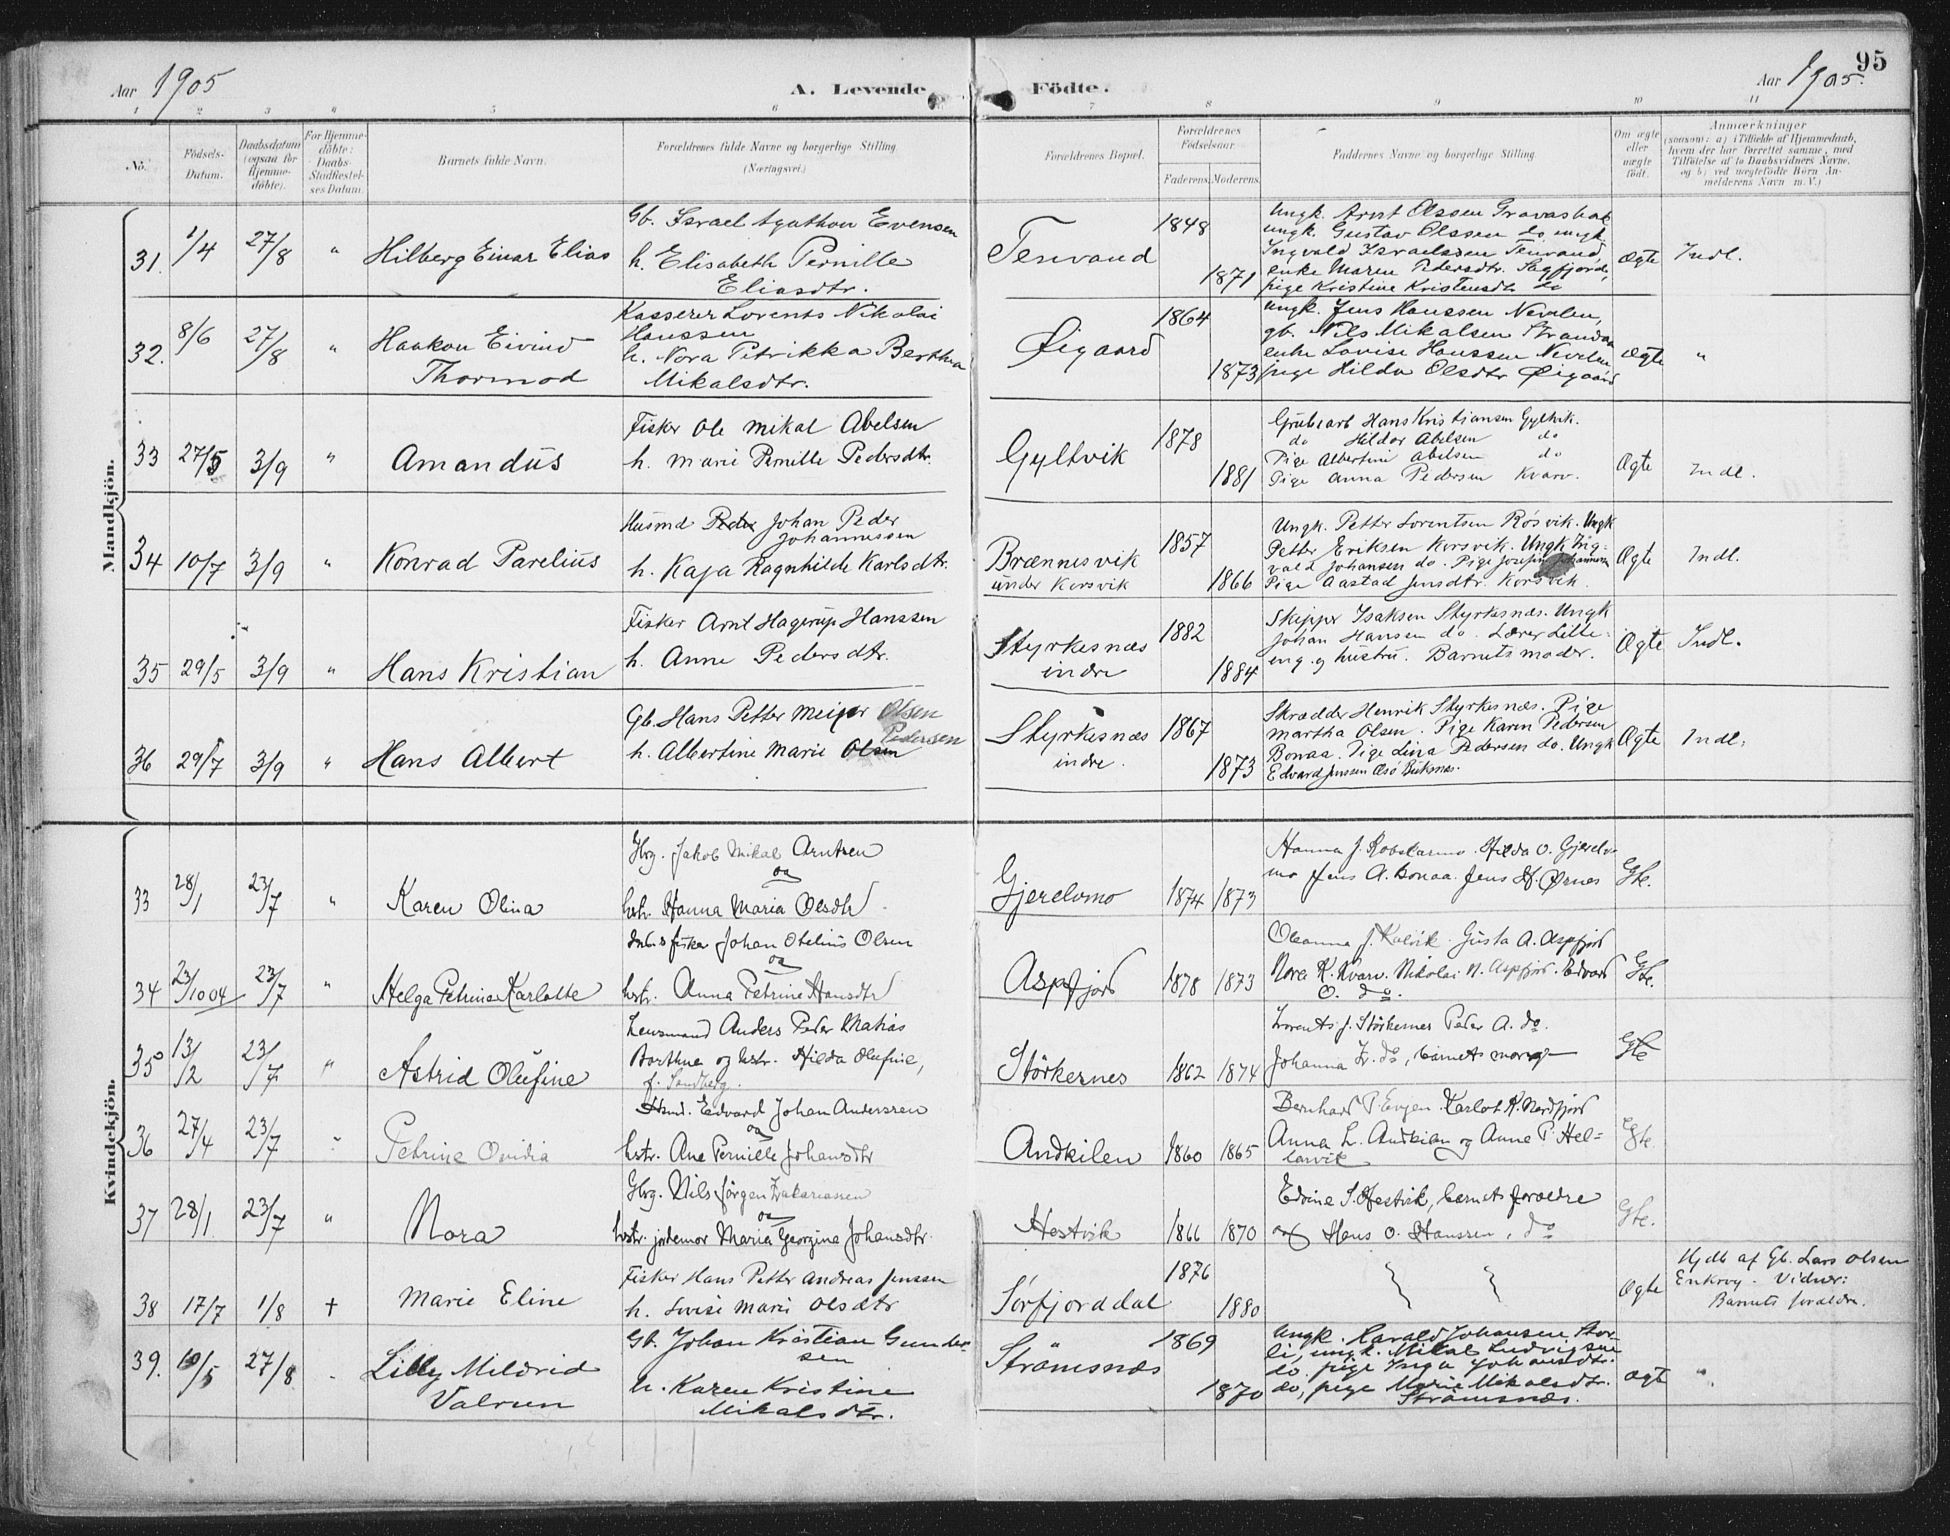 95
Aar 1905
A. Levende Födte.
Aar 1905.
1 2 3 4 5 6 7 8 9 10 11
No.
Födsels-Datum.
Daabsdatum (ogsaa for Hjemmedöbte).
For Hjemmedöbte: Daabs-Stadfæstelses Datum.
Barnets fulde Navn.
Forældrenes fulde Navne og borgerlige Stilling (Næringsvei.)
Forældrenes Bopæl.
Forældrenes Födselsaar.
Faderens. Moderens.
Faddernes Navne og borgerlige Stilling.
Om ægte eller uægte födt.
Anmærkninger
(saasom: a) i Tilfælde af Hjemmedaab, hvem der har forrettet samme, med Tilföielse af to Daabsvidners Navne, og b) ved uægtefödte Börn Anmelderens Navn m. V.)
Mandkjön.
31. 1/4 27/8 " Hilberg Einar Elias
Gb. Israel Agathon Evensen
h. Elisabeth Pernille
Eliasdtr.
Tenvand 1848 1871
Ungk. Arnt Olssen Gravasbak
ungk. Gustav Olssen do ungk
Ingvald Israelssen Tenvand,
enke Maren Pedersdtr. Sagfjord,
pige Kristine Kristensdtr do
ægte Indl.
32. 8/6 27/8 " Haakon Eivind
Thormod
Kasserer Lorents Nikolai
Hanssen
h. Nora Petrikka Berthea
Mikalsdtr.
Øigaard 1864 1873
Ungk. Jens Hanssen Nevelen,
gb. Nils Mikalsen Strandaa
enke Lovise Hanssen Nevelen
pige Hilda Olsdtr Øigaard
ægte "
33 27/5 3/9 " Amandus
Fisker Ole Mikal Abelsen
h. Marie Pernille Pedersdtr.
Gyltvik 1878 1881
Grubearb Hans Kristiansen Gyltvik.
do Hildor Abelsen do
Pige Albertine Abelsen do
Pige Anna Pedersen Kvarv.
Ægte Indl.
34 10/7 3/9 " Konrad Parelius
Husmd Peder Johan Peder
Johannessen
h. Kaja Ragnhilde Karlsdtr.
Brænnesvik
under Korsvik 1857 1866
Ungk. Petter Lorentsen Røsvik. Ungk
Petter Eriksen Korsvik. Ungk Ing-
vald Johansen do. Pige Josefine Johannesen
Pige Aastad Jensdtr. Korsvik.
Ægte Indl.
35 29/5 3/9 " Hans Kristian
Fisker Arnt Hagerup Hanssen
h. Anne Pedersdtr.
Styrkesnæs
indre 1882 1884
Skipper Isaksen Styrkesnæs. Ungk
Johan Hansen do. Lærer Lille-
eng og hustru. Barnets moder.
Ægte Indl.
36 29/7 3/9 " Hans Albert
Gb. Hans Petter Meijer Olsen
Pedersen
h. Albertine Marie Olsen
Styrkesnæs
indre. 1867 1873
Skrædder Henrik Styrkesnæs. Pige
Martha Olsen. Pige Karen Pedersen
Bonaa. Pige Lina Pedersen do. Ungk
Edvard Jenssen
Ægte Indl.
Kvindekjön.
33 28/1 23/7 " Karen Olina
Gbrg. Jakob Mikal Arntsen
og
hstr. Hanna Maria Olsdtr
Gjerelvmo 1874 1873
Hanna J. Hilda O. Gjerelv-
mo Jens A. Bonaa. Jens H. Ørnes
Gte.
34 23/10 04 23/7 " Helga Petrine Karlotte
fisker Johan Otelius Olsen
og
hstr. Anna Petrine Hansdtr
Aspfjord 1878 1873
Oleanna J. Kalvik. Gusta A. Aspfjord
Nora K. Kvarv. Nikolai N. Aspfjord. Edvard
O. do.
Gte.
35 13/2 23/7 " Astrid Olufine
Lensmand Anders Peder Matias
og hstr. Hilda Olufine,
f. Sandberg.
Störkernes 1862 1874
Lorents J. Störkernes Peder A. do.
Johanna do, barnets mor
Gte
36 27/4 23/7 " Petrine Ovidia
Hsmd. Edvard Johan Anderssen
og
hstr. Ane Pernille Johansdtr
Andkilen 1860 1865
Bernhard P. Evjen. Karlot K. Nordfjord
Anna L. Andkilen og Anne P. Hel-
larvik
Gte.
37 28/1 23/7 " Nora
Gbrg. Nils Jørgen Zakariassen
og
hstr. jordemor Maria Georgina Johansdtr
Hestvik 1866 1870
Edvine S. Hestvik, barnets forældre
og Hans O. Hanssen, do
Gte.
38 17/7 1/8 + Marie Eline
Fisker Hans Petter Andreas Jenssen
h. Lovise Marie Olsdtr
Sørfjorddal 1876 1880
Ægte
Hjdb af Gb. Lars Olsen
Enkrog. Vidner:
Barnets forældre.
39. 10/5 27/8 Lilly Mildrid
Valrun
Gb. Johan Kristian Gunder-
sen
h. Karen Kristine
Mikalsdtr.
Strømsnæs 1869 1870
Ungk. Harald Johansen Stor-
li, ungk. Mikal Ludvigsen
do, pige Inga Johansdtr.
do, pige Marie Mikalsdtr.
Strømsnæs.
ægt "